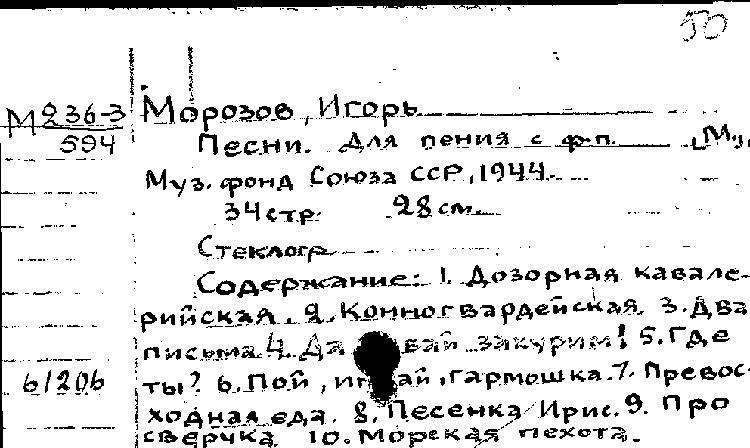 50
М 236-3
594
Морозов, Игорь
Песни. Для пения с ф-п. [М.],
Муз. фонд Союза ССР, 1944.
34 стр. 28 см.
Стеклогр.
Содержание: 1. Дозорная кавале-
рийская. 2. Конногвардейская. 3. Два
письма. 4. закурим! 5. Где
61206
ты? 6. Пой, гармошка. 7. Превос-
ходная еда. 8. Песенка Ирис. 9. Про
сверчка. 10. Морская пехота.